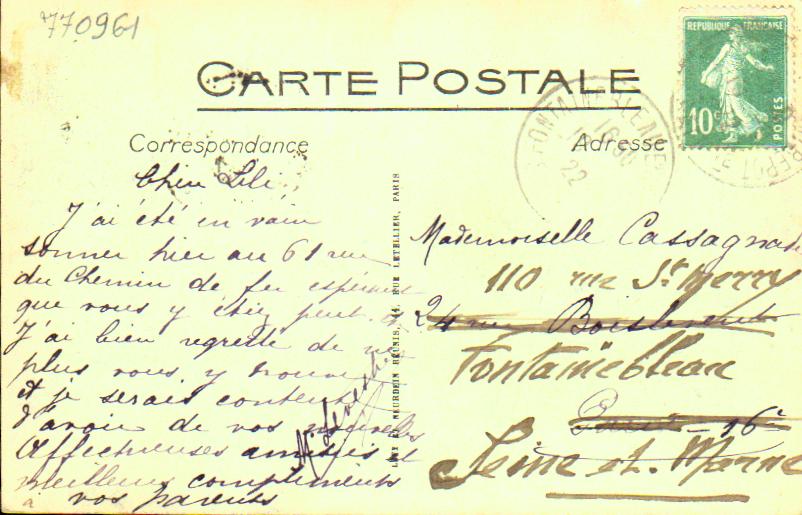 770961
CARTE POSTALE
REPUBLIQUE FRANCAISE
10c
POSTES
FONTAINEBLEAU
16 30
22
Correspondance
Adresse
Chère Lili,
J'ai été en vain
sonner hier au 61 rue
du Chemin de fer espérant
que vous y étiez peut
J'ai bien regretté de ne
plus vous y trouver
et je serais content
d'avoir de vos nouvelles
Affectueuses amitiés et
meilleurs compliments
à vos parents
LEVY ET NEURDEIN RÉUNIS, 44, RUE LETELLIER, PARIS
Mademoiselle Cassagnade
110 rue St Merry
24 rue Boislevent
Fontainebleau
Paris - 16e
Seine et. Marne